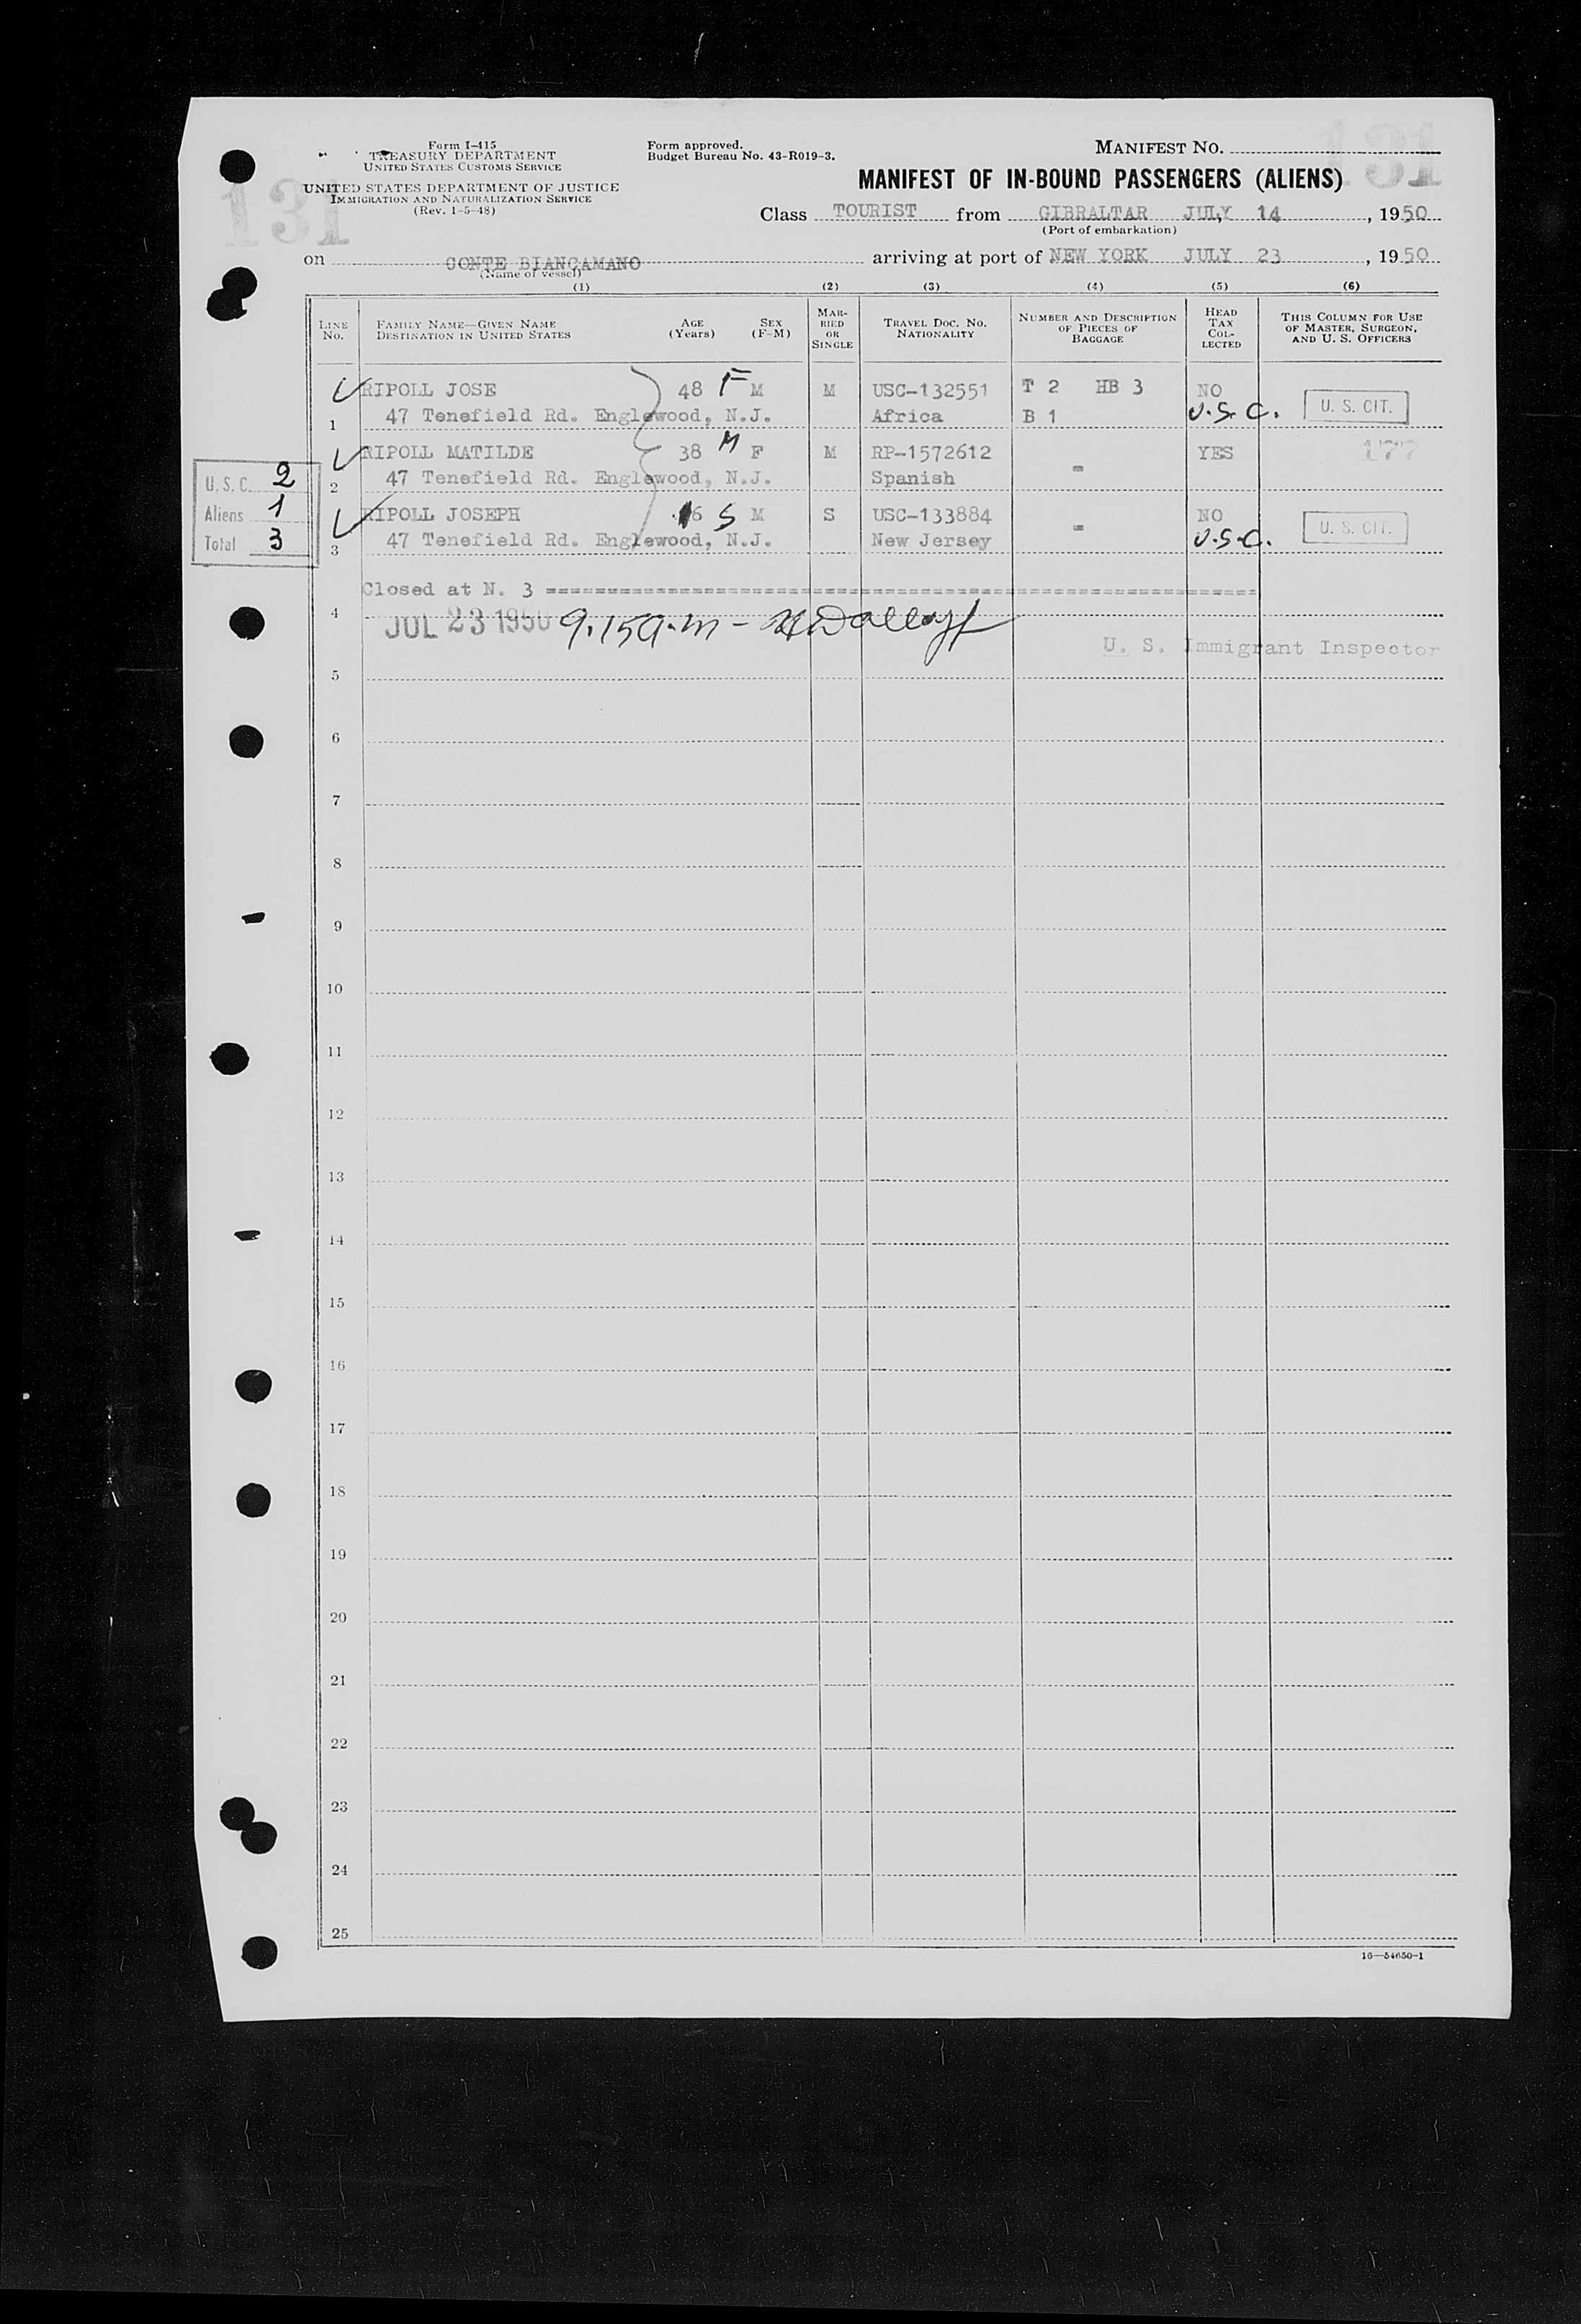 Form I-415
TREASURY DEPARTMENT
UNITED STATES CUSTOMS SERVICE
UNITED STATES DEPARTMENT OF JUSTICE
IMMIGRATION AND NATURALIZATION SERVICE
(Rev. 1-5-48)
Form approved.
Budget Bureau No. 43-R019-3.
MANIFEST NO.
131
131
MANIFEST OF IN-BOUND PASSENGERS (ALIENS)
Class TOURIST from GIBRALTAR JULY 14, 1950
(Port of embarkation)
on CONTE BIANCAMANO arriving at port of NEW YORK JULY 23, 1950
(Name of vessel)
(1) (2) (3) (4) (5) (6)
LINE No. FAMILY NAME—GIVEN NAME DESTINATION IN UNITED STATES AGE (Years) SEX (F-M) MARRIED OR SINGLE TRAVEL DOC. NO. NATIONALITY NUMBER AND DESCRIPTION OF PIECES OF BAGGAGE HEAD TAX COLLECTED THIS COLUMN FOR USE OF MASTER, SURGEON, AND U. S. OFFICERS
RIPOLL JOSE 48 F M M USC-132551 T 2 HB 3 NO
1 47 Tenefield Rd. Englewood, N.J. Africa B 1 U.S.C. U. S. CIT.
RIPOLL MATILDE 38 M F M RP-1572612 - YES 177
2 47 Tenefield Rd. Englewood, N.J. Spanish
RIPOLL JOSEPH 16 S M S USC-133884 - NO
3 47 Tenefield Rd. Englewood, N.J. New Jersey U.S.C. U. S. CIT.
U. S. C. 2
Aliens 1
Total 3
Closed at N. 3 ==========
4 JUL 23 1950 9.15 a.m -
U. S. Immigrant Inspector
5
6
7
8
9
10
11
12
13
14
15
16
17
18
19
20
21
22
23
24
25
16—54650-1